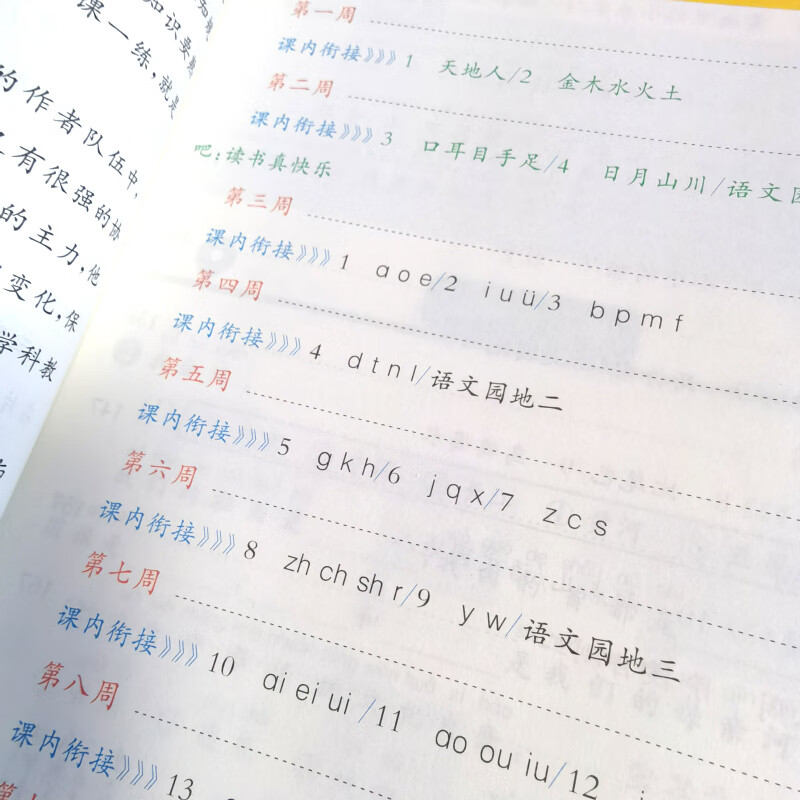 知识要
课一练,就是
的作者队伍中,
有很强的协
的主力,他
变化,保
学科教
第一周
课内衔接》》》1 天地人/2 金木水火土
第二周
课内衔接》》》3 口耳目手足/4 日月山川/语文园
吧:读书真快乐
第三周
课内衔接》》》1 ɑ o e/2 i u ü/3 b p m f
第四周
课内衔接》》》4 d t n l/语文园地二
第五周
课内衔接》》》5 g k h/6 j q x/7 z c s
第六周
课内衔接》》》8 zh ch sh r/9 y w/语文园地三
第七周
课内衔接》》》10 ɑi ei ui/11 ɑo ou iu/12
第八周
课内衔接》》》13